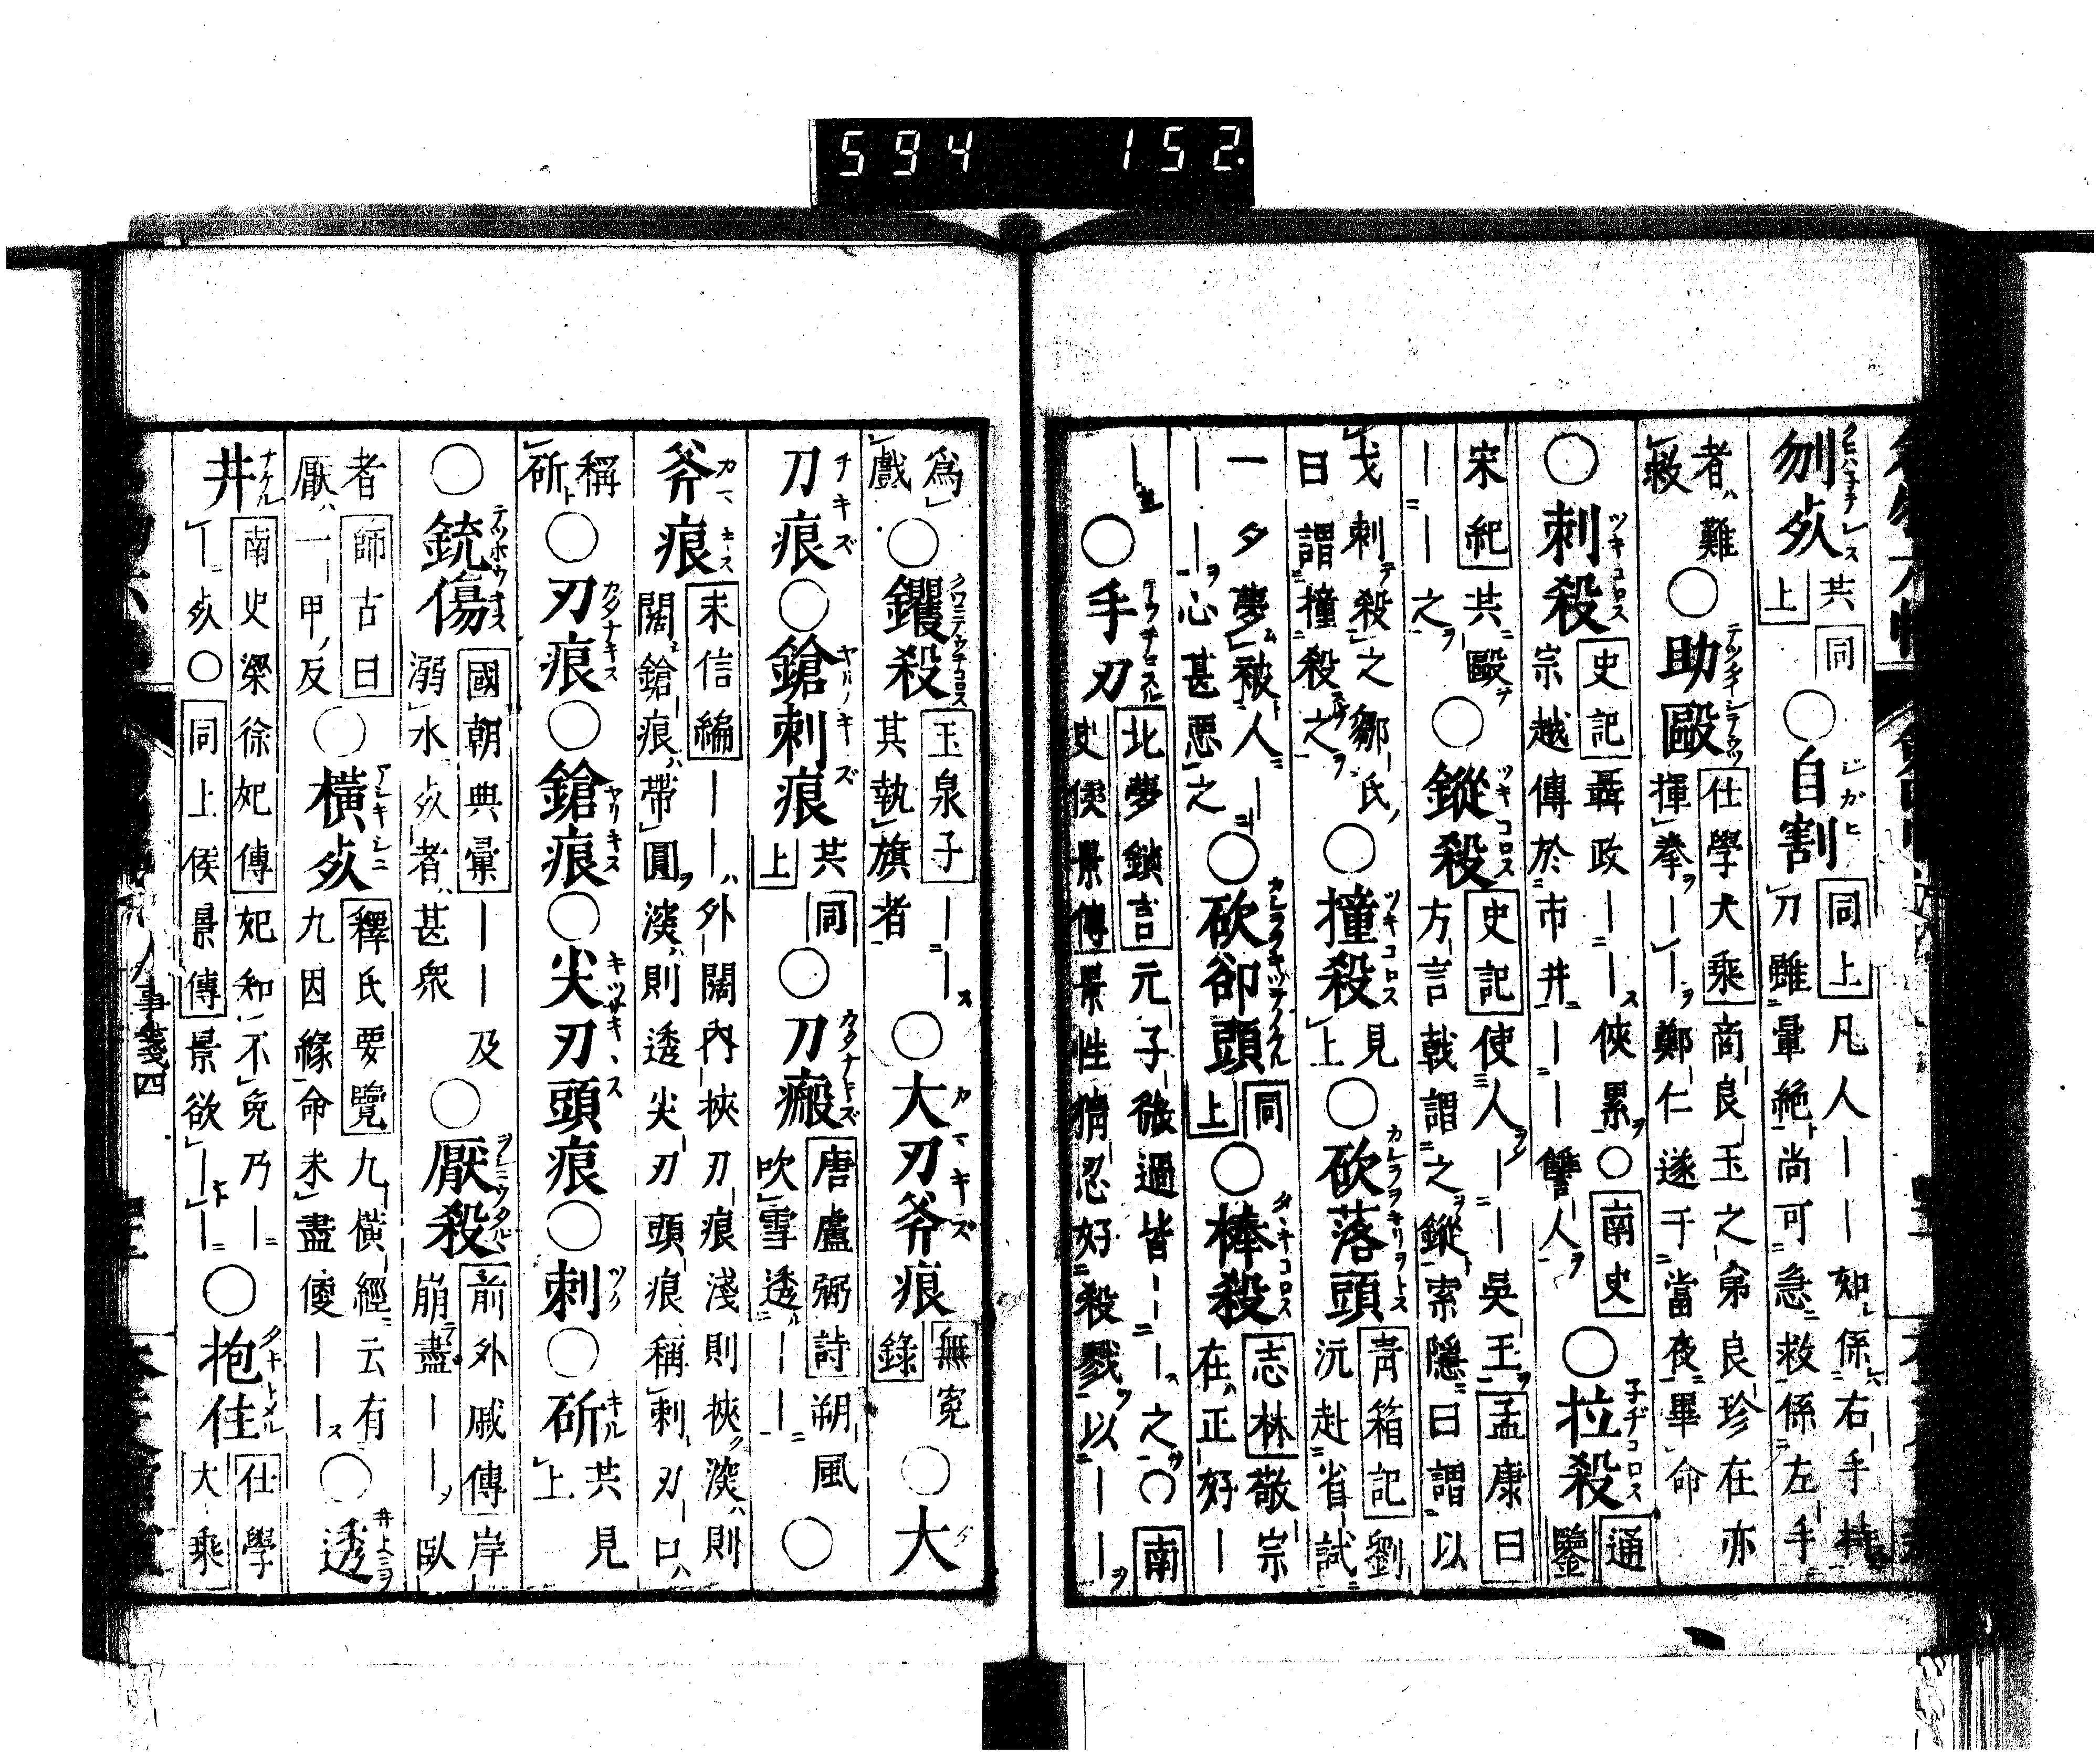 594 152.
刎死 共同上 ○自割 同上 凡人――如係右手持刀雖暈絶尚可急救係左手
者難救 ○助毆 仕學大乘 商良玉之弟良珍在亦揮拳――鄭仁遂于當夜畢命
○刺殺 史記 聶政――俠累○南史宗越傳於市井――讐人 ○拉殺 通鑒
宋紀 共毆――之 ○鏦殺 史記 使人――吳王 孟康曰 方言戟謂之鏦 索隱曰謂以
戈刺殺之鄒氏曰謂撞殺之 ○撞殺 見上 ○砍落頭 青箱記 劉沆赴省試
一夕夢被人―――心甚惡之 ○砍卻頭 同上 ○棒殺 志林 敬宗在正好―
― ○手刃 北夢鎖言 元子 過皆――之○南史侯景傳 景性猜忍好殺戮以――
爲戲 ○钁殺 玉泉子 ――其執旗者 ○大刃斧痕 無寃錄 ○大
刀痕 ○鎗刺痕 共同上 ○刀瘢 唐盧弼詩 朔風吹雪透――○
斧痕 未信編 ――外闊内挾刃痕淺則挾深則闊鎗痕帶圓深則透尖刃頭痕稱刺刃口
稱斫 ○刃痕 ○鎗痕 ○尖刃頭痕 ○刺 ○斫 共見上
○銃傷 國朝典彙 ――及溺水死者甚衆 ○厭殺 前外戚傳 岸崩盡――臥
者 師古曰 厭一甲反 ○橫死 釋氏要覽 九橫經云有九因緣命未盡儍―― ○透
井 南史梁徐妃傳 妃知不免乃――死○同上侯景傳 景欲―― ○抱住 仕學大乘
人事箋四